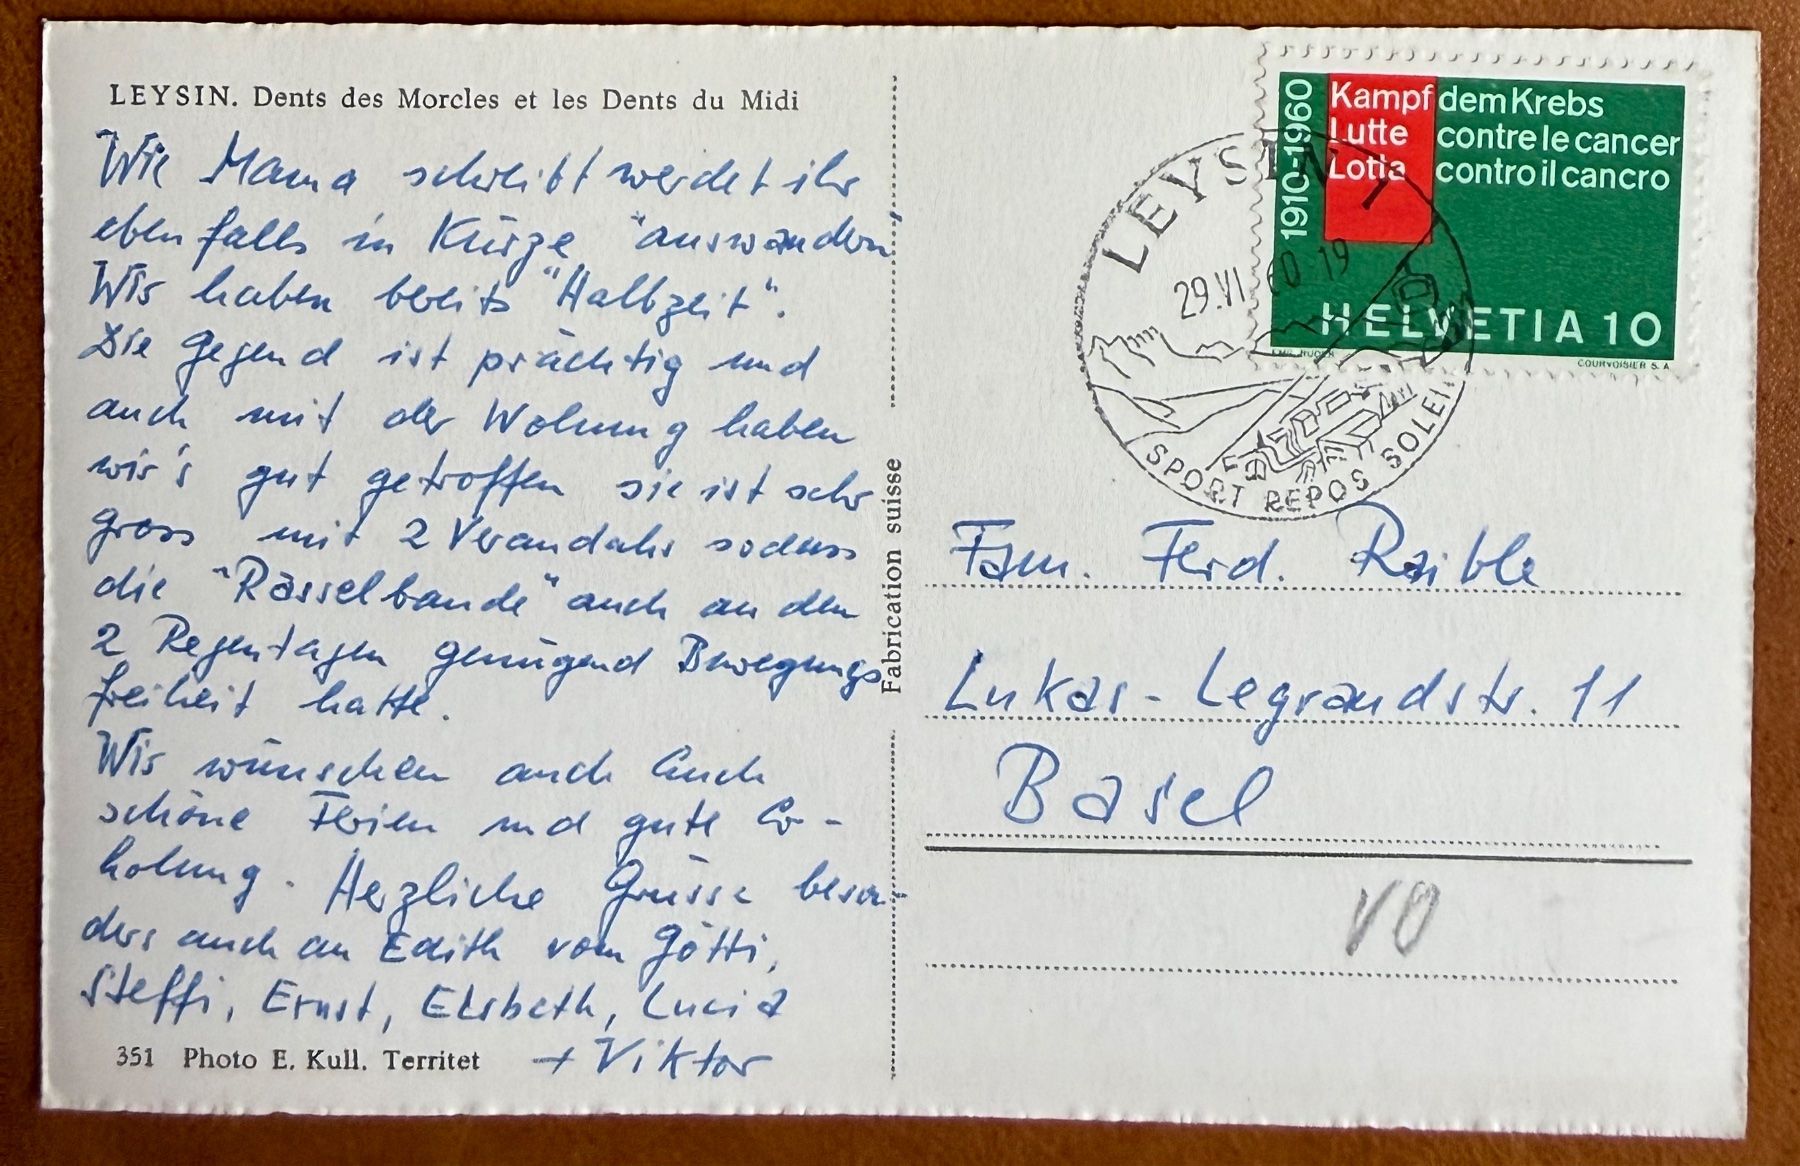 LEYSIN. Dents des Morcles et les Dents du Midi
Wie Mama schreibt werdet ihr
ebenfalls in Kürze "auswandern"
Wir haben bereits "Halbzeit".
Die Gegend ist prächtig und
auch mit der Wohnung haben
wir's gut getroffen sie ist sehr
gross mit 2 Verandahs sodass
die "Rasselbande" auch an den
2 Regentagen genügend Bewegungs
freiheit hatte.
Wir wünschen auch Euch
schöne Ferien und gute Er-
holung. Herzliche Grüsse beson-
ders auch an Edith vom Götti,
Steffi, Ernst, Elsbeth, Lucia
+ Viktor
351 Photo E. Kull. Territet
Fabrication suisse
1910-1960
Kampf dem Krebs
Lutte contre le cancer
Lotta contro il cancro
HELVETIA 10
COURVOISIER S. A
LEYSIN 1
29.VI.60.19
SPORT REPOS SOLEIL
Fam. Ferd. Raible
Lukas-Legrandstr. 11
Basel
VO